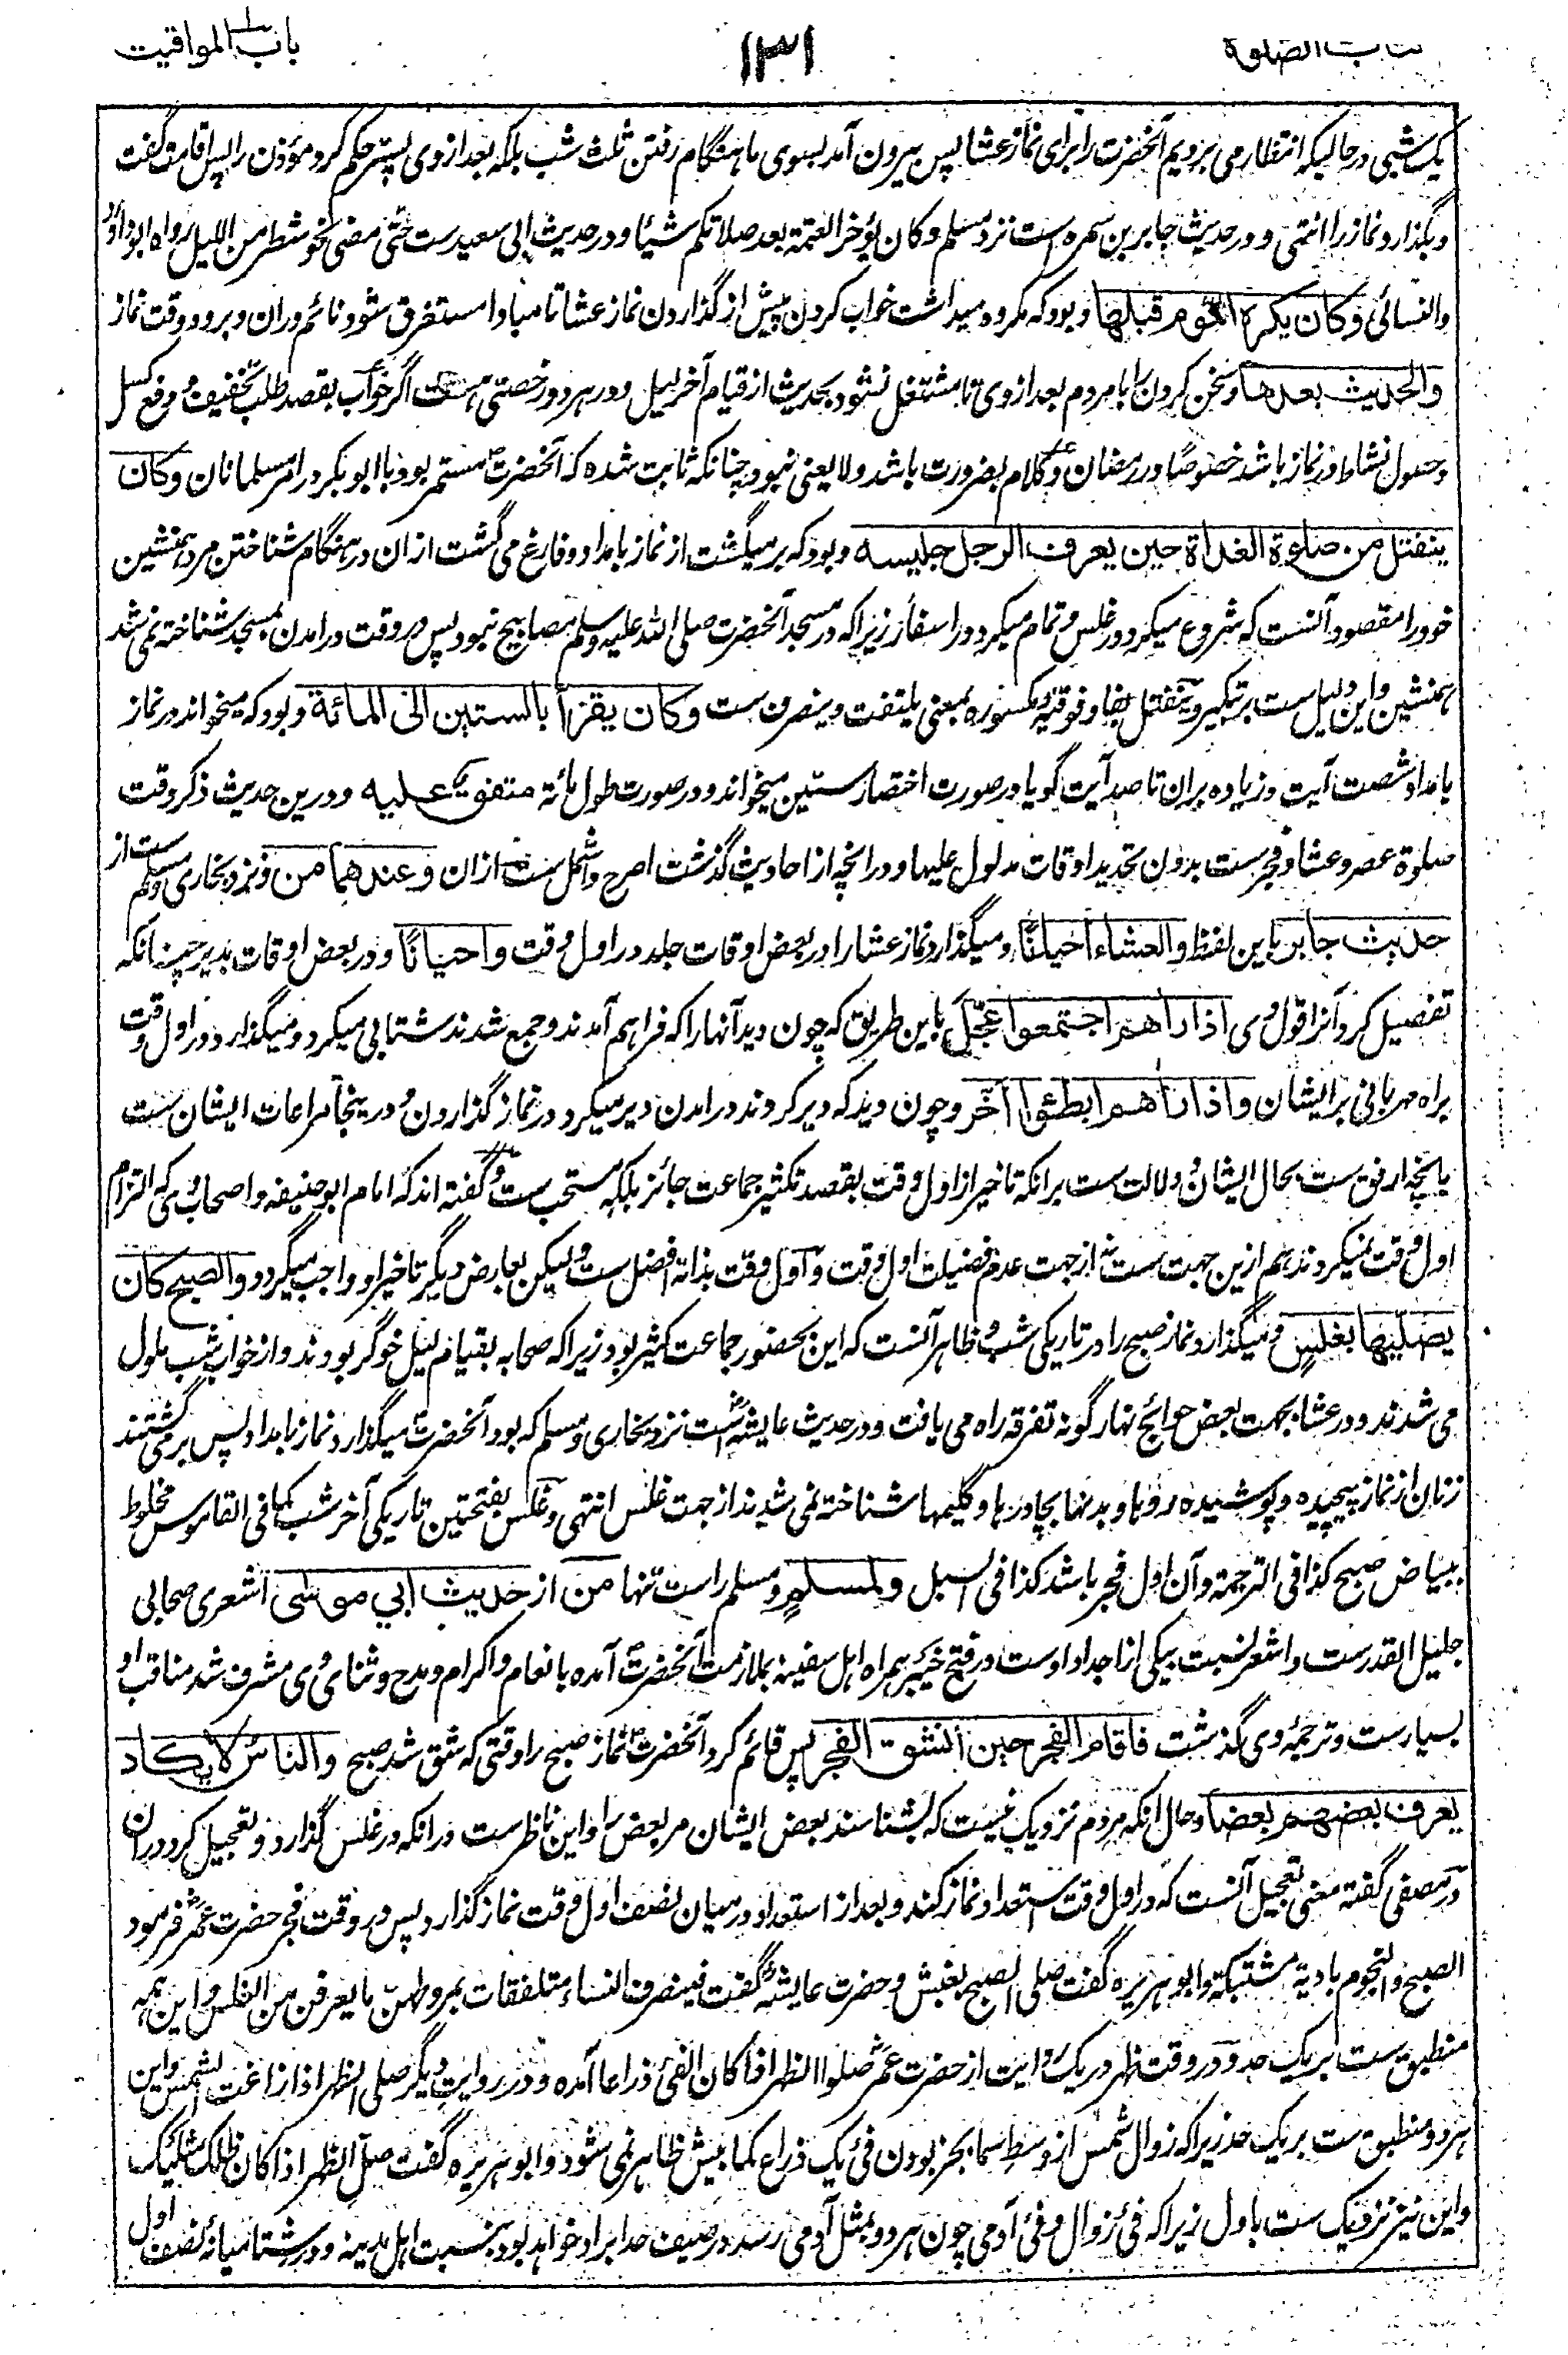 باب المواقيت
۱۳۱
كتاب الصلوة
یک شبی در حالیکه انتظار می بردیم آنحضرت را برای نماز عشا پس بیرون آمد بسوی ما هنگام رفتن ثلث شب بلکه بعد از وی پستر حکم کرد مؤذن را پس اقامت گفت
و بگذارد نماز را انتهی و در حدیث جابر بن سمره است نزد مسلم و کان یؤخر العتمة بعد صلاتکم شیئا و در حدیث ابی سعید ست حتی مضی نحو شطر من اللیل رواه ابو داود
والنسائی وکان یکره النوم قبلها و بود که مکروه میداشت خواب کردن پیش از گذاردن نماز عشا تا مبادا مستغرق شود نائم دران و برود وقت نماز
والحدیث بعدها و سخن کردن را با مردم بعد از وی تا مشتغل نشود بحدیث از قیام آخر لیل و در هر دو رخصتی هست اگر خواب بقصد طلب تخفیف و رفع کسل
و حصول نشاط در نماز باشد خصوصا در رمضان و کلام بضرورت باشد و لا یعنی نبود چنانکه ثابت شده که آنحضرت مستمر بود با ابو بکر در امر مسلمانان وکان
ینفتل من صلوة الغداة حین یعرف الرجل جلیسه و بود که بر میگشت از نماز بامداد و فارغ می گشت ازان در هنگام شناختن مرد همنشین
خود را مقصود آنست که شروع میکرد در غلس و تمام میکرد در اسفار زیراکه در مسجد آنحضرت صلی الله علیه وسلم مصابیح نبود پس در وقت درامدن بمسجد شناخته نمی شد
همنشین و این دلیل ست بر تبکیر و ینفتل بفا و فوقیه مکسوره بمعنی یلتفت و ینصرف ست وکان یقرأ بالستین الی المائة و بود که میخواند در نماز
بامداد شصت آیت و زیاده بران تا صد آیت گویا در صورت اختصار ستین میخواند و در صورت طول مائة متفق علیه و درین حدیث ذکر وقت
صلوة عصر و عشا و فجر ست بدون تحدید اوقات مدلول علیها و در آنچه از احادیث گذشت اصرح و اشمل ست ازان وعندهما من و نزد بخاری و مسلم ست از
حدیث جابر باین لفظ والعشاء احیانا و میگذارد نماز عشا را در بعض اوقات جلد در اول وقت واحیانا و در بعض اوقات بدیر چنانکه
تفصیل کرد آنرا قول وی اذا رآهم اجتمعوا عجل باین طریق که چون دید آنها را که فراهم آمدند و جمع شدند شتابی میکرد و میگذارد در اول وقت
براه مهربانی بر ایشان واذا رآهم ابطئوا أخر و چون دید که دیر کردند درامدن دیر میکرد در نماز گذاردن و درینجا مراعات ایشان ست
بآنچه ارفق ست بحال ایشان و دلالت ست برانکه تاخیر از اول وقت بقصد تکثیر جماعت جائز بلکه مستحب ست و گفته اند که امام ابو حنیفه و اصحاب وی که التزام
اول وقت نمیکردند هم ازین جهت ست نه از جهت عدم فضیلت اول وقت و اول وقت بذاته افضل ست و لیکن بعارض دیگر تاخیر او واجب میگردد والصبح کان
یصلیها بغلس و میگذارد نماز صبح را در تاریکی شب و ظاهر آنست که این بحضور جماعت کثیر بود زیراکه صحابه بقیام لیل خوگر بودند و از خواب شب ملول
می شدند و در عشا بجهت بعض حوائج نهار گونه تفرقه راه می یافت و در حدیث عایشه ست نزد بخاری و مسلم که بود آنحضرت میگذارد نماز بامداد پس بر می گشتند
زنان از نماز پیچیده و پوشیده روها و بدنها بچادرها و گلیمها شناخته نمی شدند از جهت غلس انتهی و غلس بفتحتین تاریکی آخر شب کما فی القاموس مخلوط
ببیاض صبح کذا فی الترجمة و آن اول فجر باشد کذا فی السبل ولمسلم و مسلم راست تنها من از حدیث ابی موسی اشعری صحابی
جلیل القدر ست و اشعر نسبت بیکی از اجداد اوست در فتح خیبر همراه اهل سفینه بملازمت آنحضرت آمده بانعام و اکرام و مدح و ثنای وی مشرف شد مناقب او
بسیار ست و ترجمۀ وی گذشت فاقام الفجر حین انشق الفجر پس قائم کرد آنحضرت نماز صبح را وقتی که شق شد صبح والناس لا یکاد
یعرف بعضهم بعضا و حال آنکه مردم نزدیک نیست که بشناسند بعض ایشان مر بعض را و این ناظر ست درانکه در غلس گذارد و تعجیل کرد دران
در مصفی گفته معنی تعجیل آنست که در اول وقت استعداد نماز کند و بعد از استعداد در میان نصف اول وقت نماز گذارد پس در وقت فجر حضرت عمر فرمود
الصبح والنجوم بادیة مشتبکة و ابو هریره گفت صلی الصبح بغبش و حضرت عایشه گفت فینصرف النساء متلفقات بمروطهن ما یعرفن من الغلس و این همه
منطبق ست بر یک حد و در وقت ظهر در یک روایت از حضرت عمر صلوا الظهر اذا کان الفئ ذراعا آمده و در روایت دیگر صلی الظهر اذا زاغت الشمس و این
هر دو منطبق ست بر یک حد زیراکه زوال شمس از وسط سما بجز بودن فئ یک ذراع کما بیش ظاهر نمی شود و ابو هریره گفت صل الظهر اذا کان ظلک مثلک
و این نیز نزدیک ست باول زیراکه فئ زوال و فئ آدمی چون هر دو بمثل آدمی رسد در صیف حد ابراد خواهد بود بنسبت اهل مدینه و در شتا میانه نصف اول